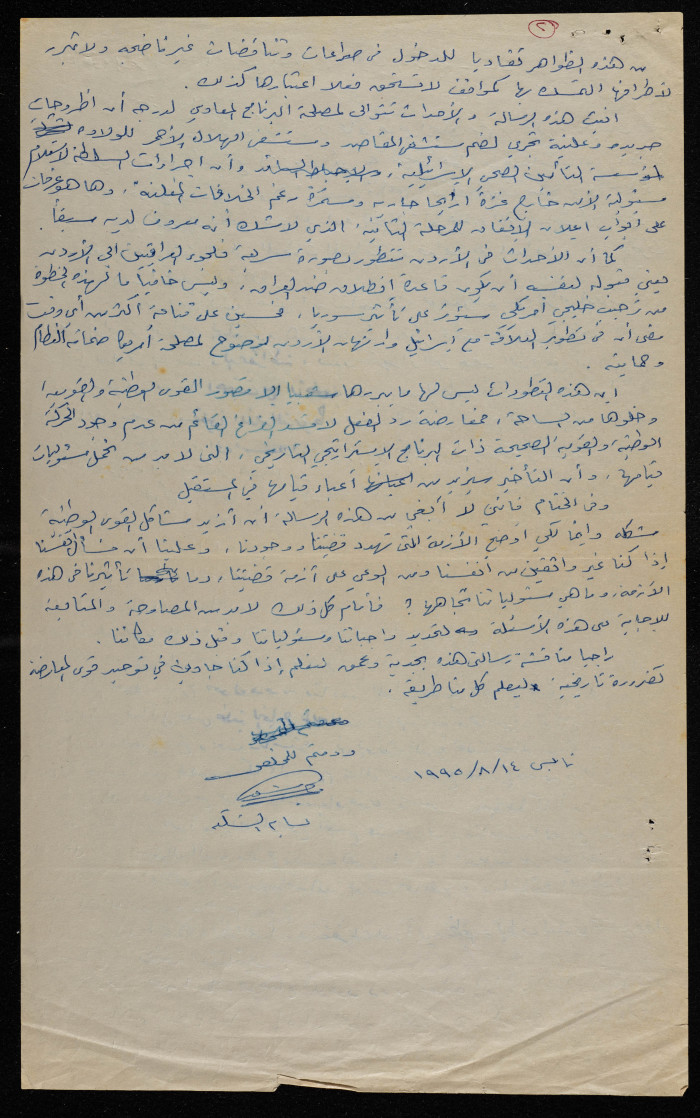 ٢
من هذه الظواهر تفاديا للدخول في صراعات وتناقضات غير ناضجه ولا تبرر
لأطرافها التمسك بها كمواقف لا تستحق فعلا اعتبارها كذلك.
هذه الرسالة والأحداث تتوالى لمصلحة البرنامج المعادي لدرجة أن أطروحات
جديده وعلنية تجري لضم مستشفى المقاصد ومستشفى الهلال الأحمر للولاده
لمؤسسة التأمين الصحي الإسرائيلية، وأن اجراءات السلطه لاستلام
مسئولية الأمن خارج غزة أريحا جاريه ومستمرة رغم الخلافات المعلنة، وها هو عرفات
على أبواب اعلان الإتفاق للمرحلة الثانية، الذي لا شك أنه معروف لديه مسبقاً.
كما أن الأحداث في الأردن تتطور بصورة سريعة فلجوء العراقيين الى الأردن
يعني قبوله لنفسه أن يكون قاعدة انطلاق ضد العراق، وليس خافياً ما لهذه الخطوة
من ترحيب خليجي أمريكي ستؤثر على تأثير سوريا، فحسين على قناعة أكثر من أي وقت
مضى أن في تطوير العلاقة مع إسرائيل وارتهان الأردن لمصلحة أمريكا ضمانة النظام
وحمايته.
إن هذه التطورات ليس لها ما يبررها إلا قصور القوى الوطنية والقومية
وخلوها من الساحة، فمعارضة رد الفعل لا الفراغ القائم من عدم وجود الحركة
الوطنية والقومية الصحيحة ذات البرنامج الاستراتيجي التاريخي، التي لا بد من تحمل مسئوليات
قيامها، وأن التأخير سيزيد من أعباء قيامها في المستقبل
وفي الختام فإنني لا أبغي من هذه الرسالة أن أزيد مشاكل القوى الوطنية
مشكله وإنما لكي أوضح الأزمة التي تهدد قضيتنا ووجودنا، وعلينا أن نسأل أنفسنا
إذا كنا غير واثقين من أنفسنا ومن الوعي على أزمة قضيتنا، وما تأثيرنا في هذه
الأزمة، وما هي مسئولياتنا تجاهها؟ فأمام كل ذلك لا بد من المصارحة والمتابعة
للإجابة على هذه الأسئلة لتحديد واجباتنا ومسئولياتنا وقبل ذلك مكاننا.
راجيا مناقشة رسالتي هذه بجدية وعمق لنعلم إذا كنا جادين في توحيد قوى المعارضة
كضرورة تاريخية ليعلم كل منا طريقه.
ودمتم للمخلص
نابلس ١٤/٨/١٩٩٥
بسام الشكعه